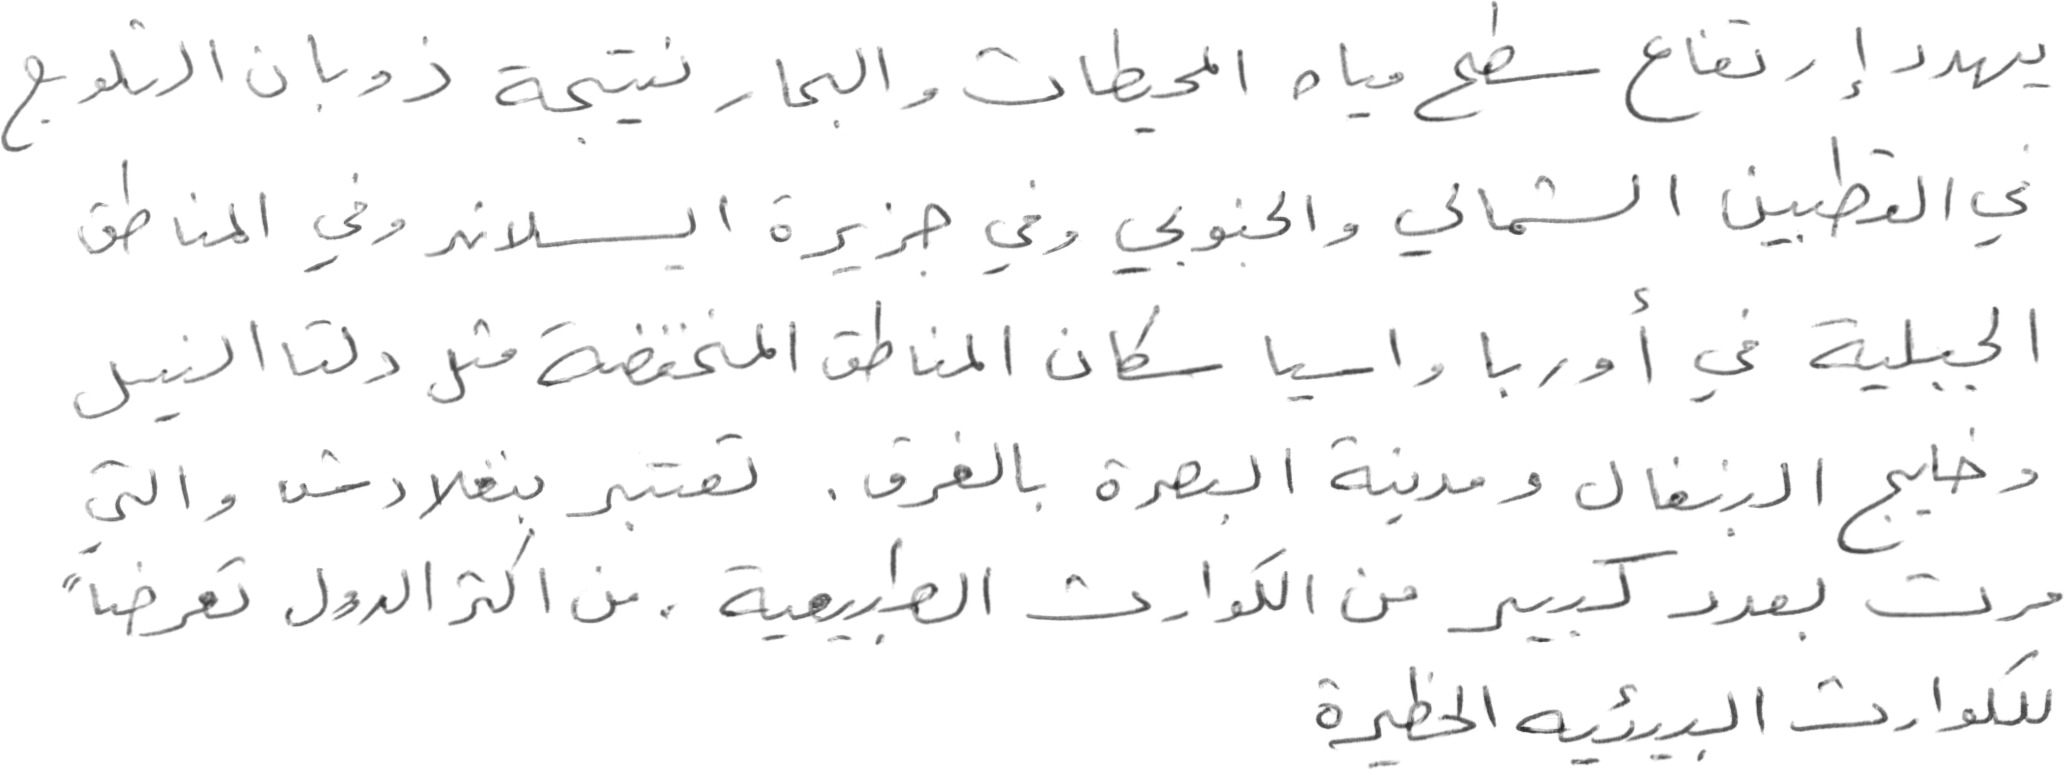 يهدد إرتفاع سطح مياه المحيطات والبحار نتيجة ذوبان الثلوج
في القطبين الشمالي والجنوبي وفي جزيرة ايسلاند وفي المناطق
الجبلية في أوربا واسيا سكان المناطق المنخفضة مثل دلتا النيل
وخليج البنغال ومدينة البصرة بالغرق. تعتبر بنغلادش والتي
مرت بعدد كبير من الكوارث الطبيعية. من اكثر الدول تعرضاً
للكوارث البيئيه الخطيرة